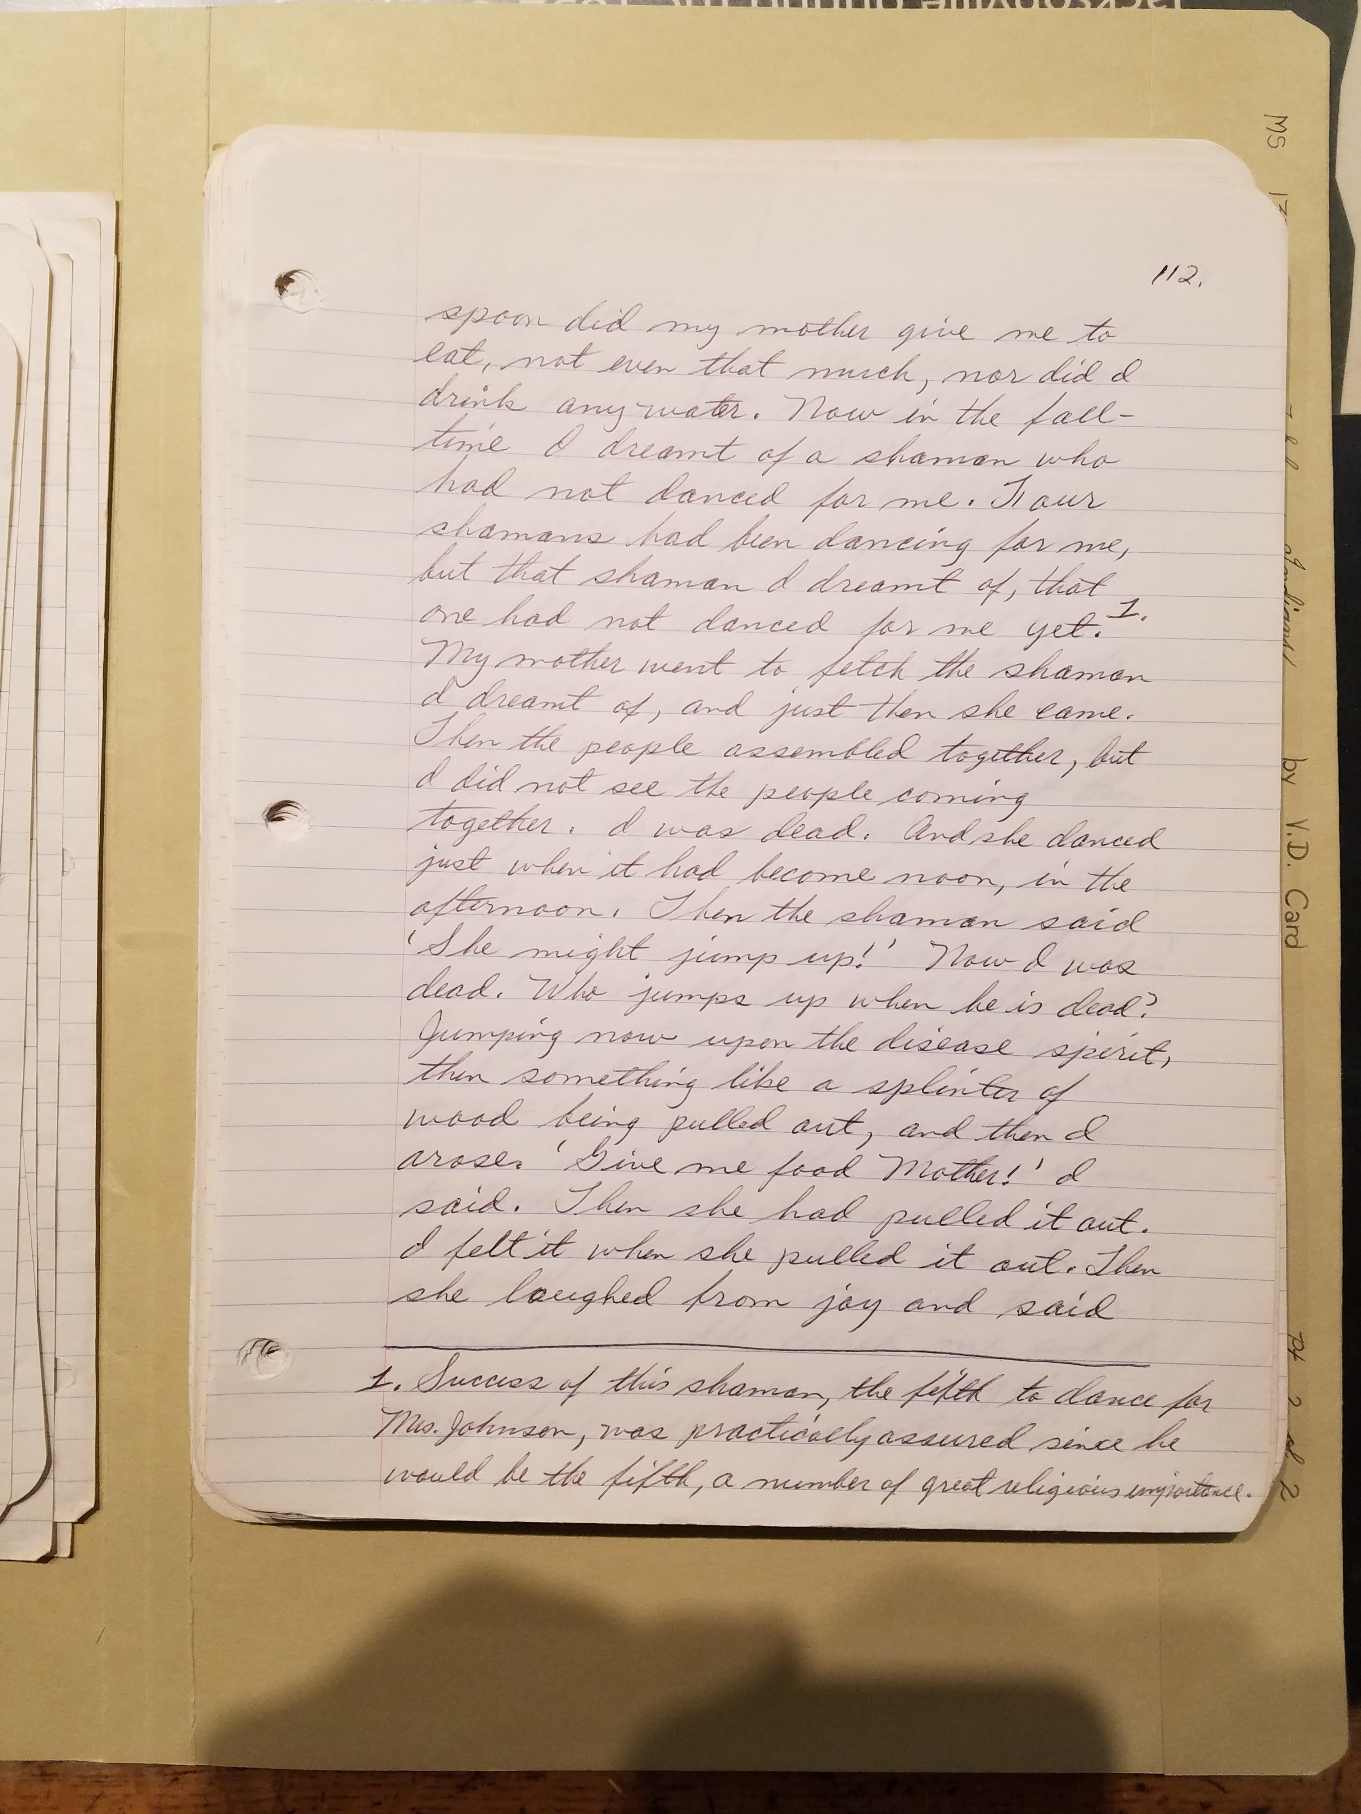 112.
spoon did my mother give me to
eat, not even that much, nor did I
drink any water. Now in the fall-
time I dreamt of a shaman who
had not danced for me. Four
shamans had been dancing for me,
but that shaman I dreamt of, that
one had not danced for me yet.1.
My mother went to fetch the shaman
I dreamt of, and just then she came.
Then the people assembled together, but
I did not see the people coming
together. I was dead. And she danced
just when it had become noon, in the
afternoon. Then the shaman said
'She might jump up!' Now I was
dead. Who jumps up when he is dead?
Jumping now upon the disease spirit,
then something like a splinter of
wood being pulled out, and then I
arose. 'Give me food Mother!' I
said. Then she had pulled it out.
I felt it when she pulled it out. Then
she laughed from joy and said
1. Success of this shaman, the fifth to dance for
Mrs. Johnson, was practically assured since he
would be the fifth, a number of great religious importance.
MS 17
Indians)
by V.D. Card
Pt 2 of 2